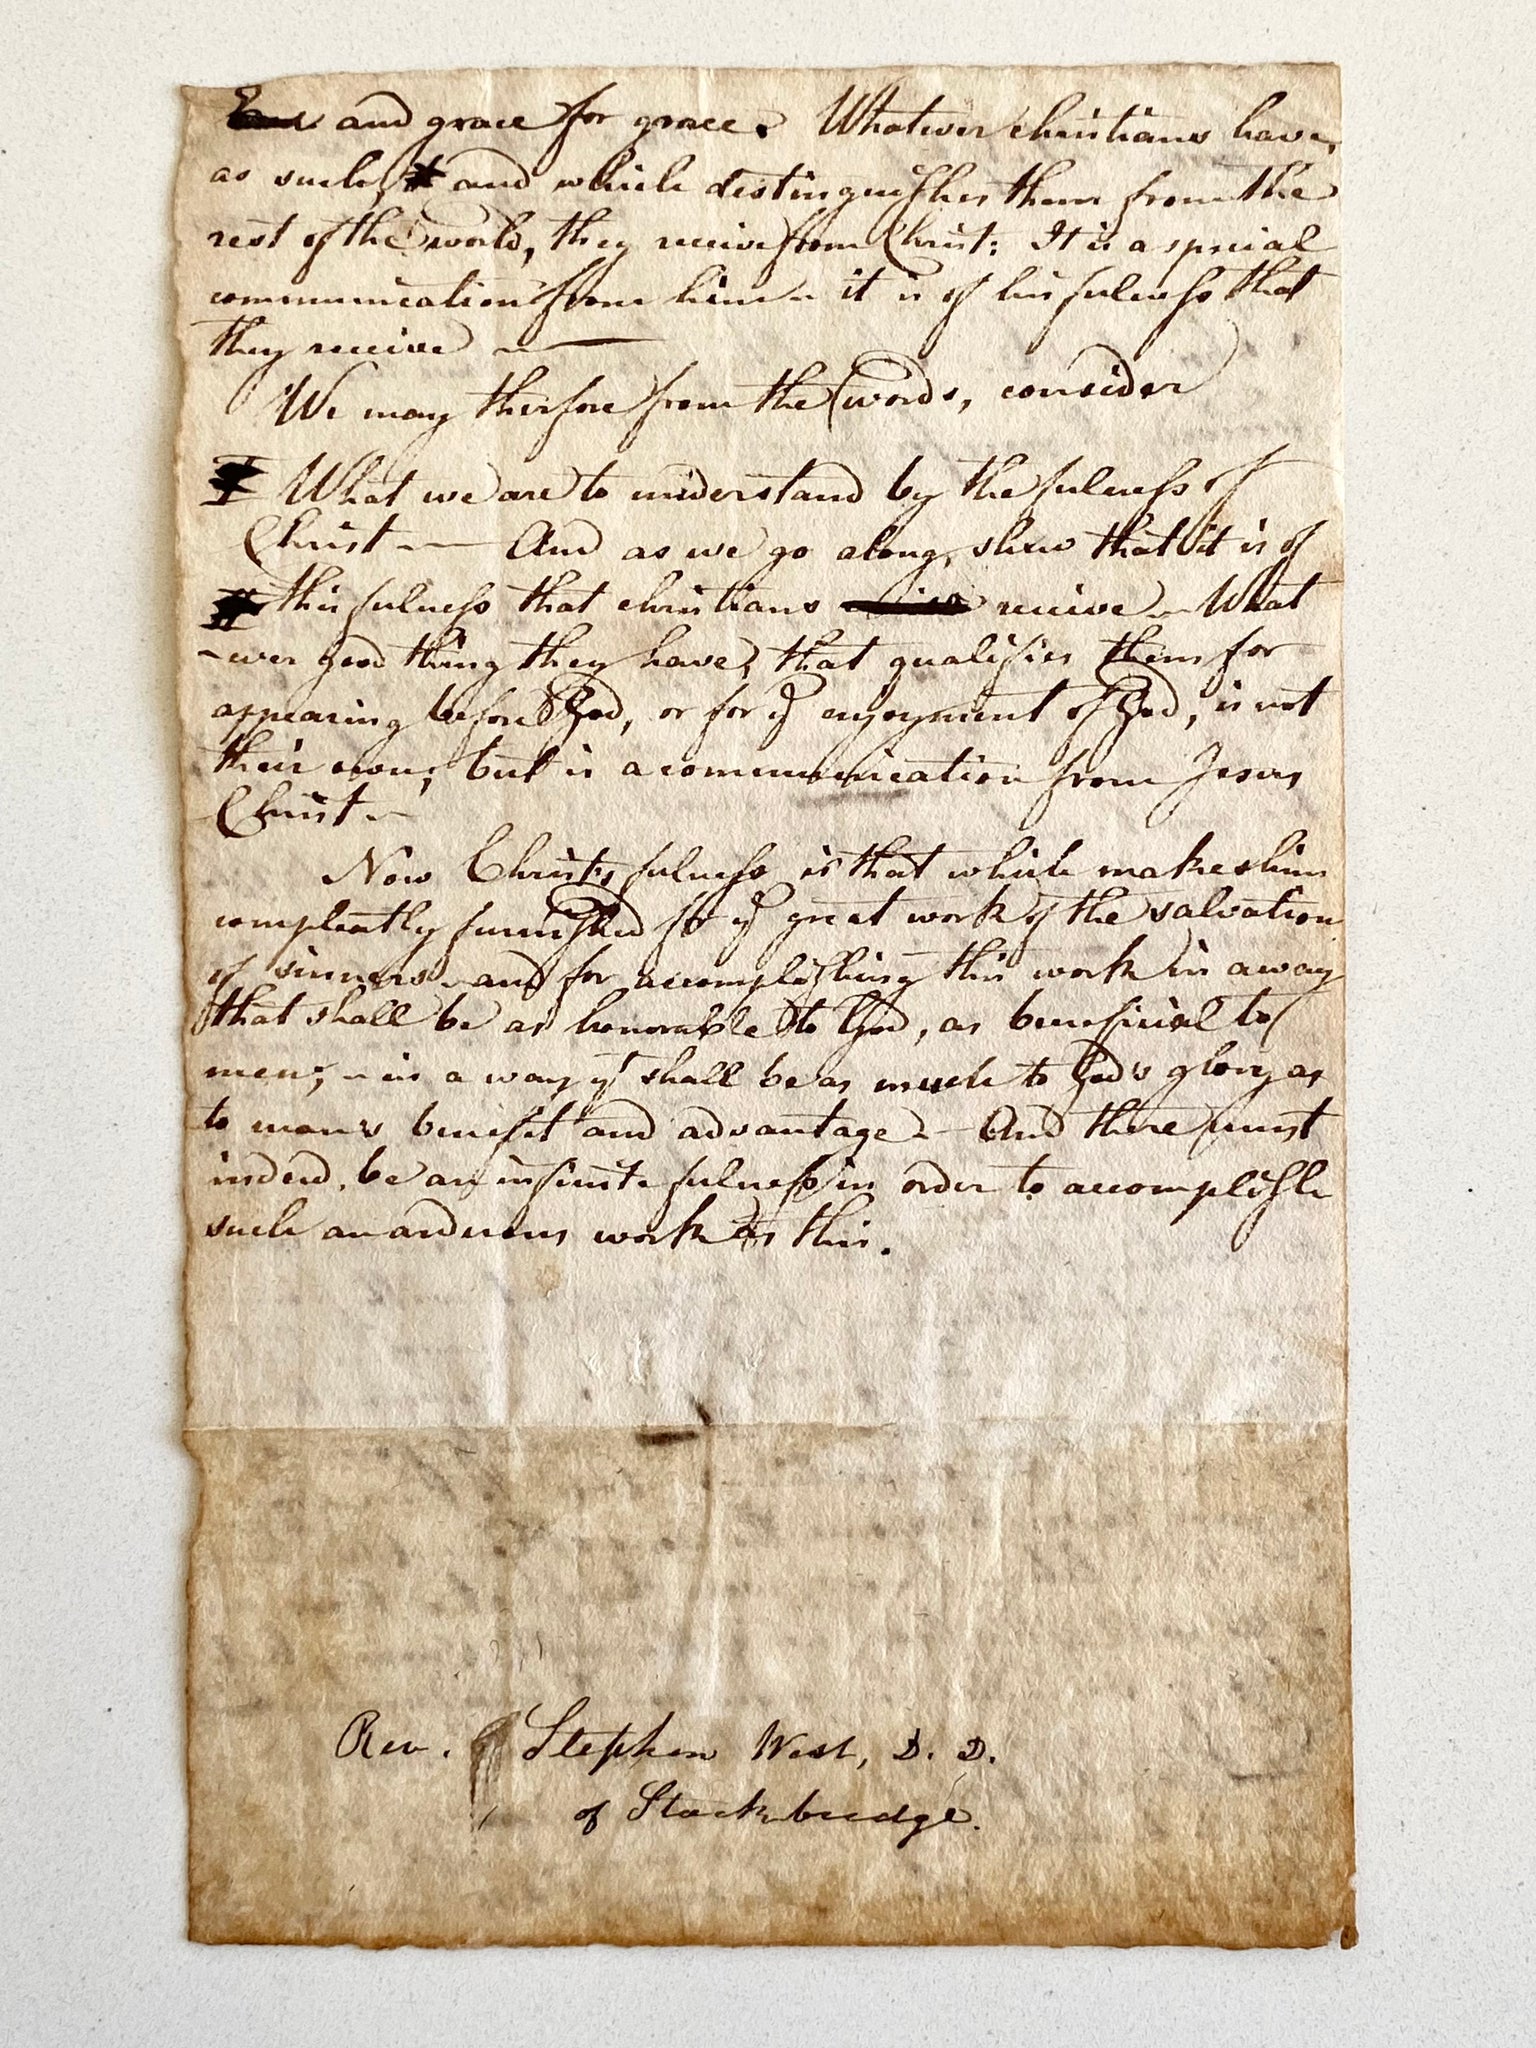 and grace for grace. Whatever christians have,
as such, and which destinguishes them from the
rest of the world, they receive from Christ: It is a special
communication from him - it is of his fulness that
they receive -
We may therfore from the words, consider
I What we are to understand by the fulness of
Christ - And as we go along, shew that it is of
this fulness that christians receive - What
-ever good thing they have, that qualifies them for
appearing before God, or for ye enjoyment of God, is not
their own; but is a communication from Jesus
Christ -
Now Christ's fulness is that which makes him
compleatly furnished for ye great work of the salvation
of sinners - and for accomplishing this work in a way
that shall be as honorable to God, as beneficial to
men; - in a way yt shall be as much to God's glory as
to man's benefit and advantage - And there must
indeed, be an infinite fulness in order to accomplish
such an arduous work as this.
Rev. Stephen West, D. D.
of Stockbridge.